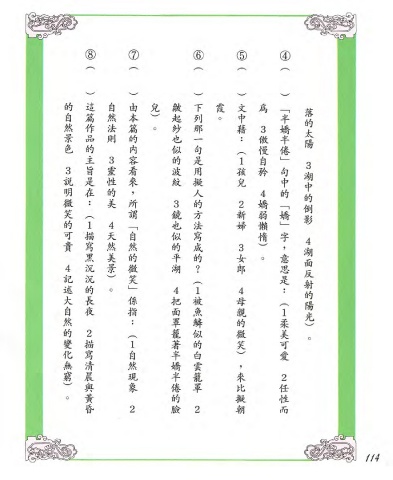 落的太陽　3湖中的倒影　4湖面反射的陽光）。
④（　　）「半嬌半倦」句中的「嬌」字，意思是：（1柔美可愛　2任性而
為　3傲慢自矜　4嬌弱懶惰）。
⑤（　　）文中藉：（1孩兒　2新婦　3女郎　4母親的微笑），來比擬朝
霞。
⑥（　　）下列那一句是用擬人的方法寫成的？（1被魚鱗似的白雲籠罩　2
皺起紗也似的波紋　3鏡也似的平湖　4把面罩籠著半嬌半倦的臉
兒）。
⑦（　　）由本篇的內容看來，所謂「自然的微笑」係指：（1自然現象　2
自然法則　3靈性的美　4天然美景）。
⑧（　　）這篇作品的主旨是在：（1描寫黑沉沉的長夜　2描寫清晨與黃昏
的自然景色　3說明微笑的可貴　4記述大自然的變化無窮）。
114